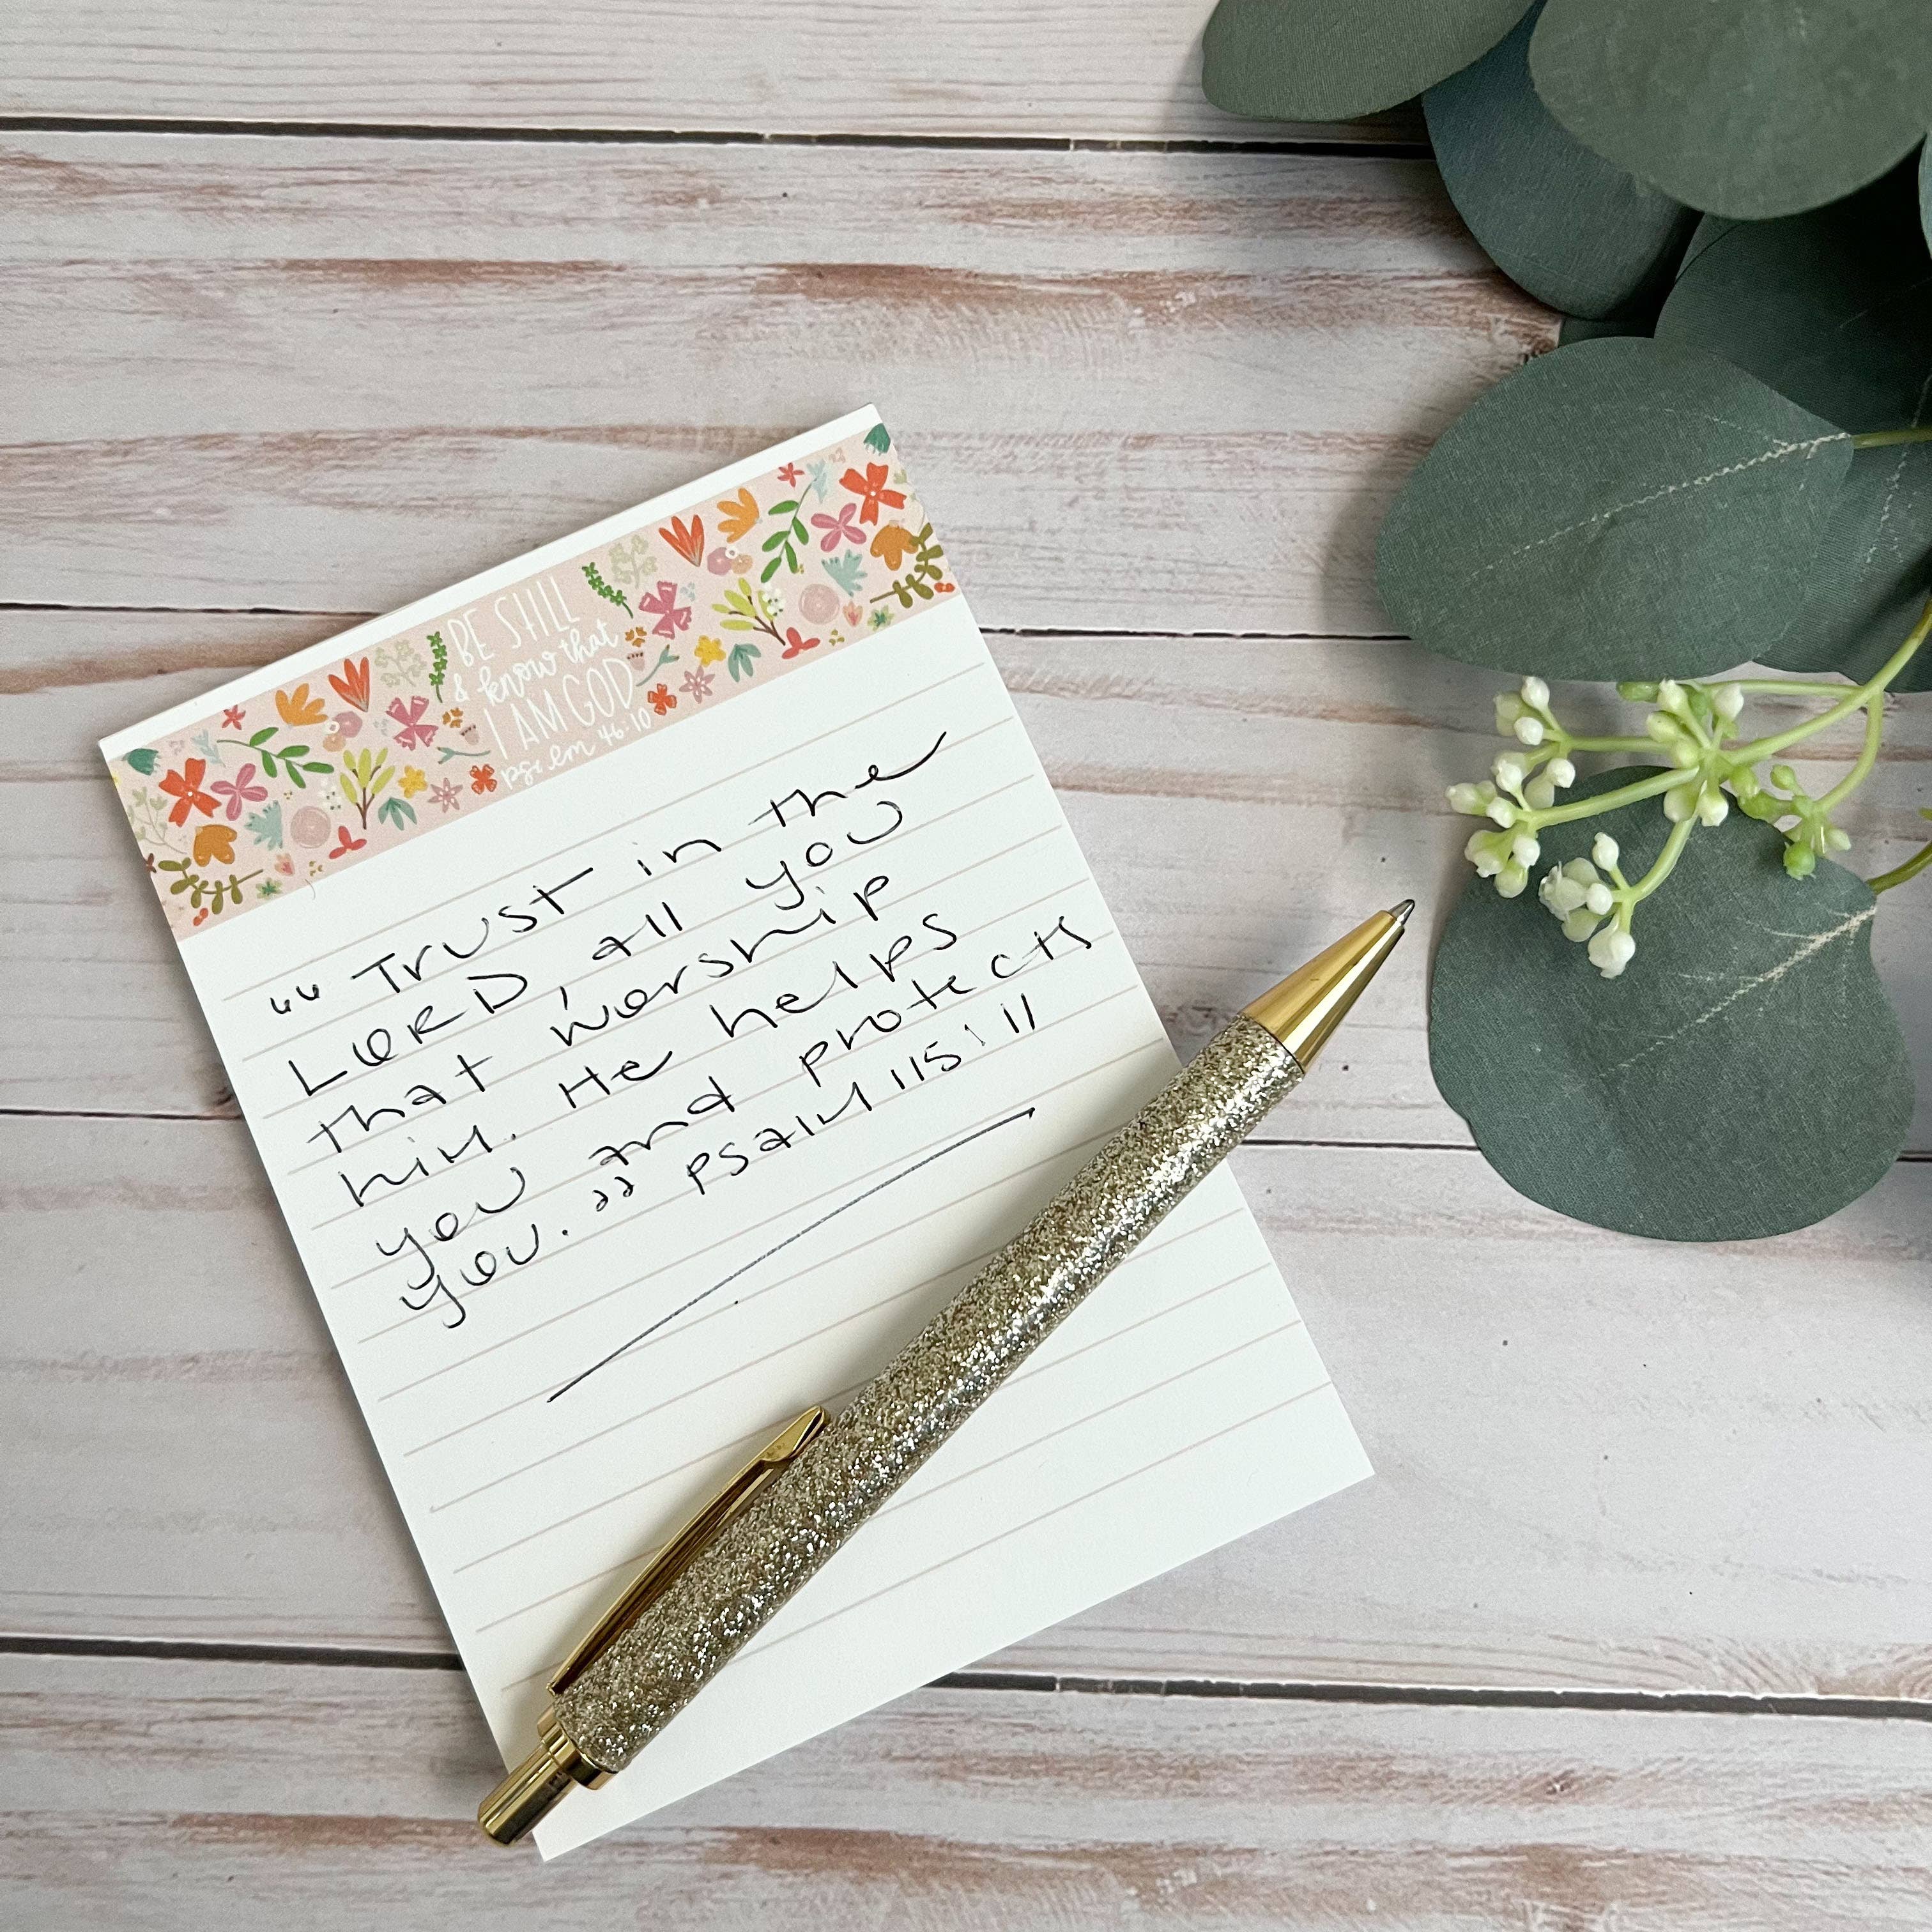 BE STILL
& know that
I AM GOD
psalm 46:10
“Trust in the
LORD, all you
that worship
him. He helps
you and protects
you.” Psalm 115:11